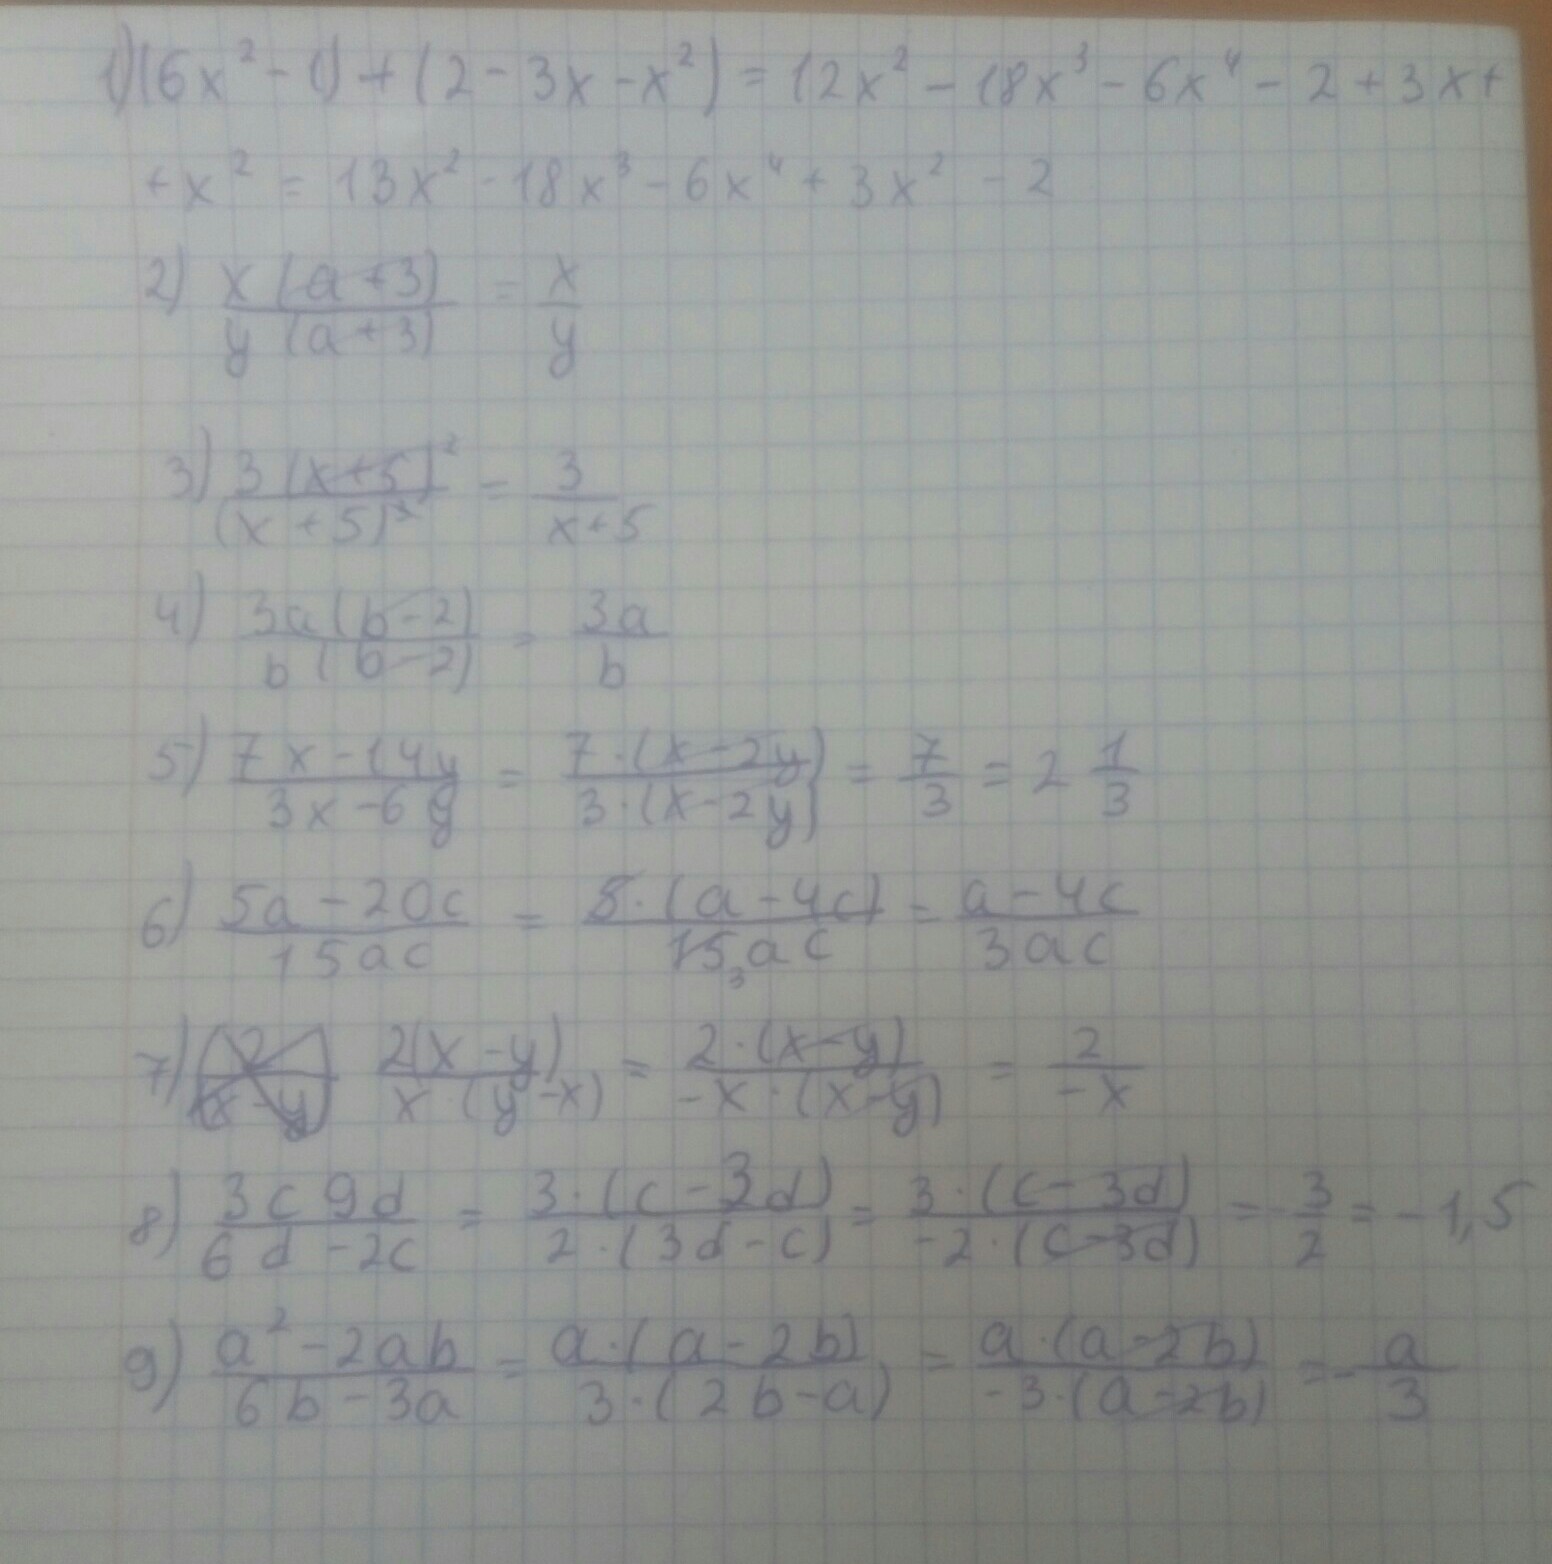 1) (6x² - 1) + (2 - 3x - x²) = 12x² - 18x³ - 6x⁴ - 2 + 3x +
+ x² = 13x² - 18x³ - 6x⁴ + 3x² - 2
2) x(a+3) / y(a+3) = x / y
3) 3(x+5)² / (x+5)³ = 3 / x+5
4) 3a(b-2) / b(b-2) = 3a / b
5) 7x-14y / 3x-6y = 7·(x-2y) / 3·(x-2y) = 7/3 = 2 1/3
6) 5a-20c / 15ac = 5·(a-4c) / 15₃ac = a-4c / 3ac
7) 2(x-y) / x·(y-x) = 2·(x-y) / -x·(x-y) = 2 / -x
8) 3c 9d / 6d-2c = 3·(c-3d) / 2·(3d-c) = 3·(c-3d) / -2·(c-3d) = -3/2 = -1,5
9) a²-2ab / 6b-3a = a·(a-2b) / 3·(2b-a) = a·(a-2b) / -3·(a-2b) = -a/3